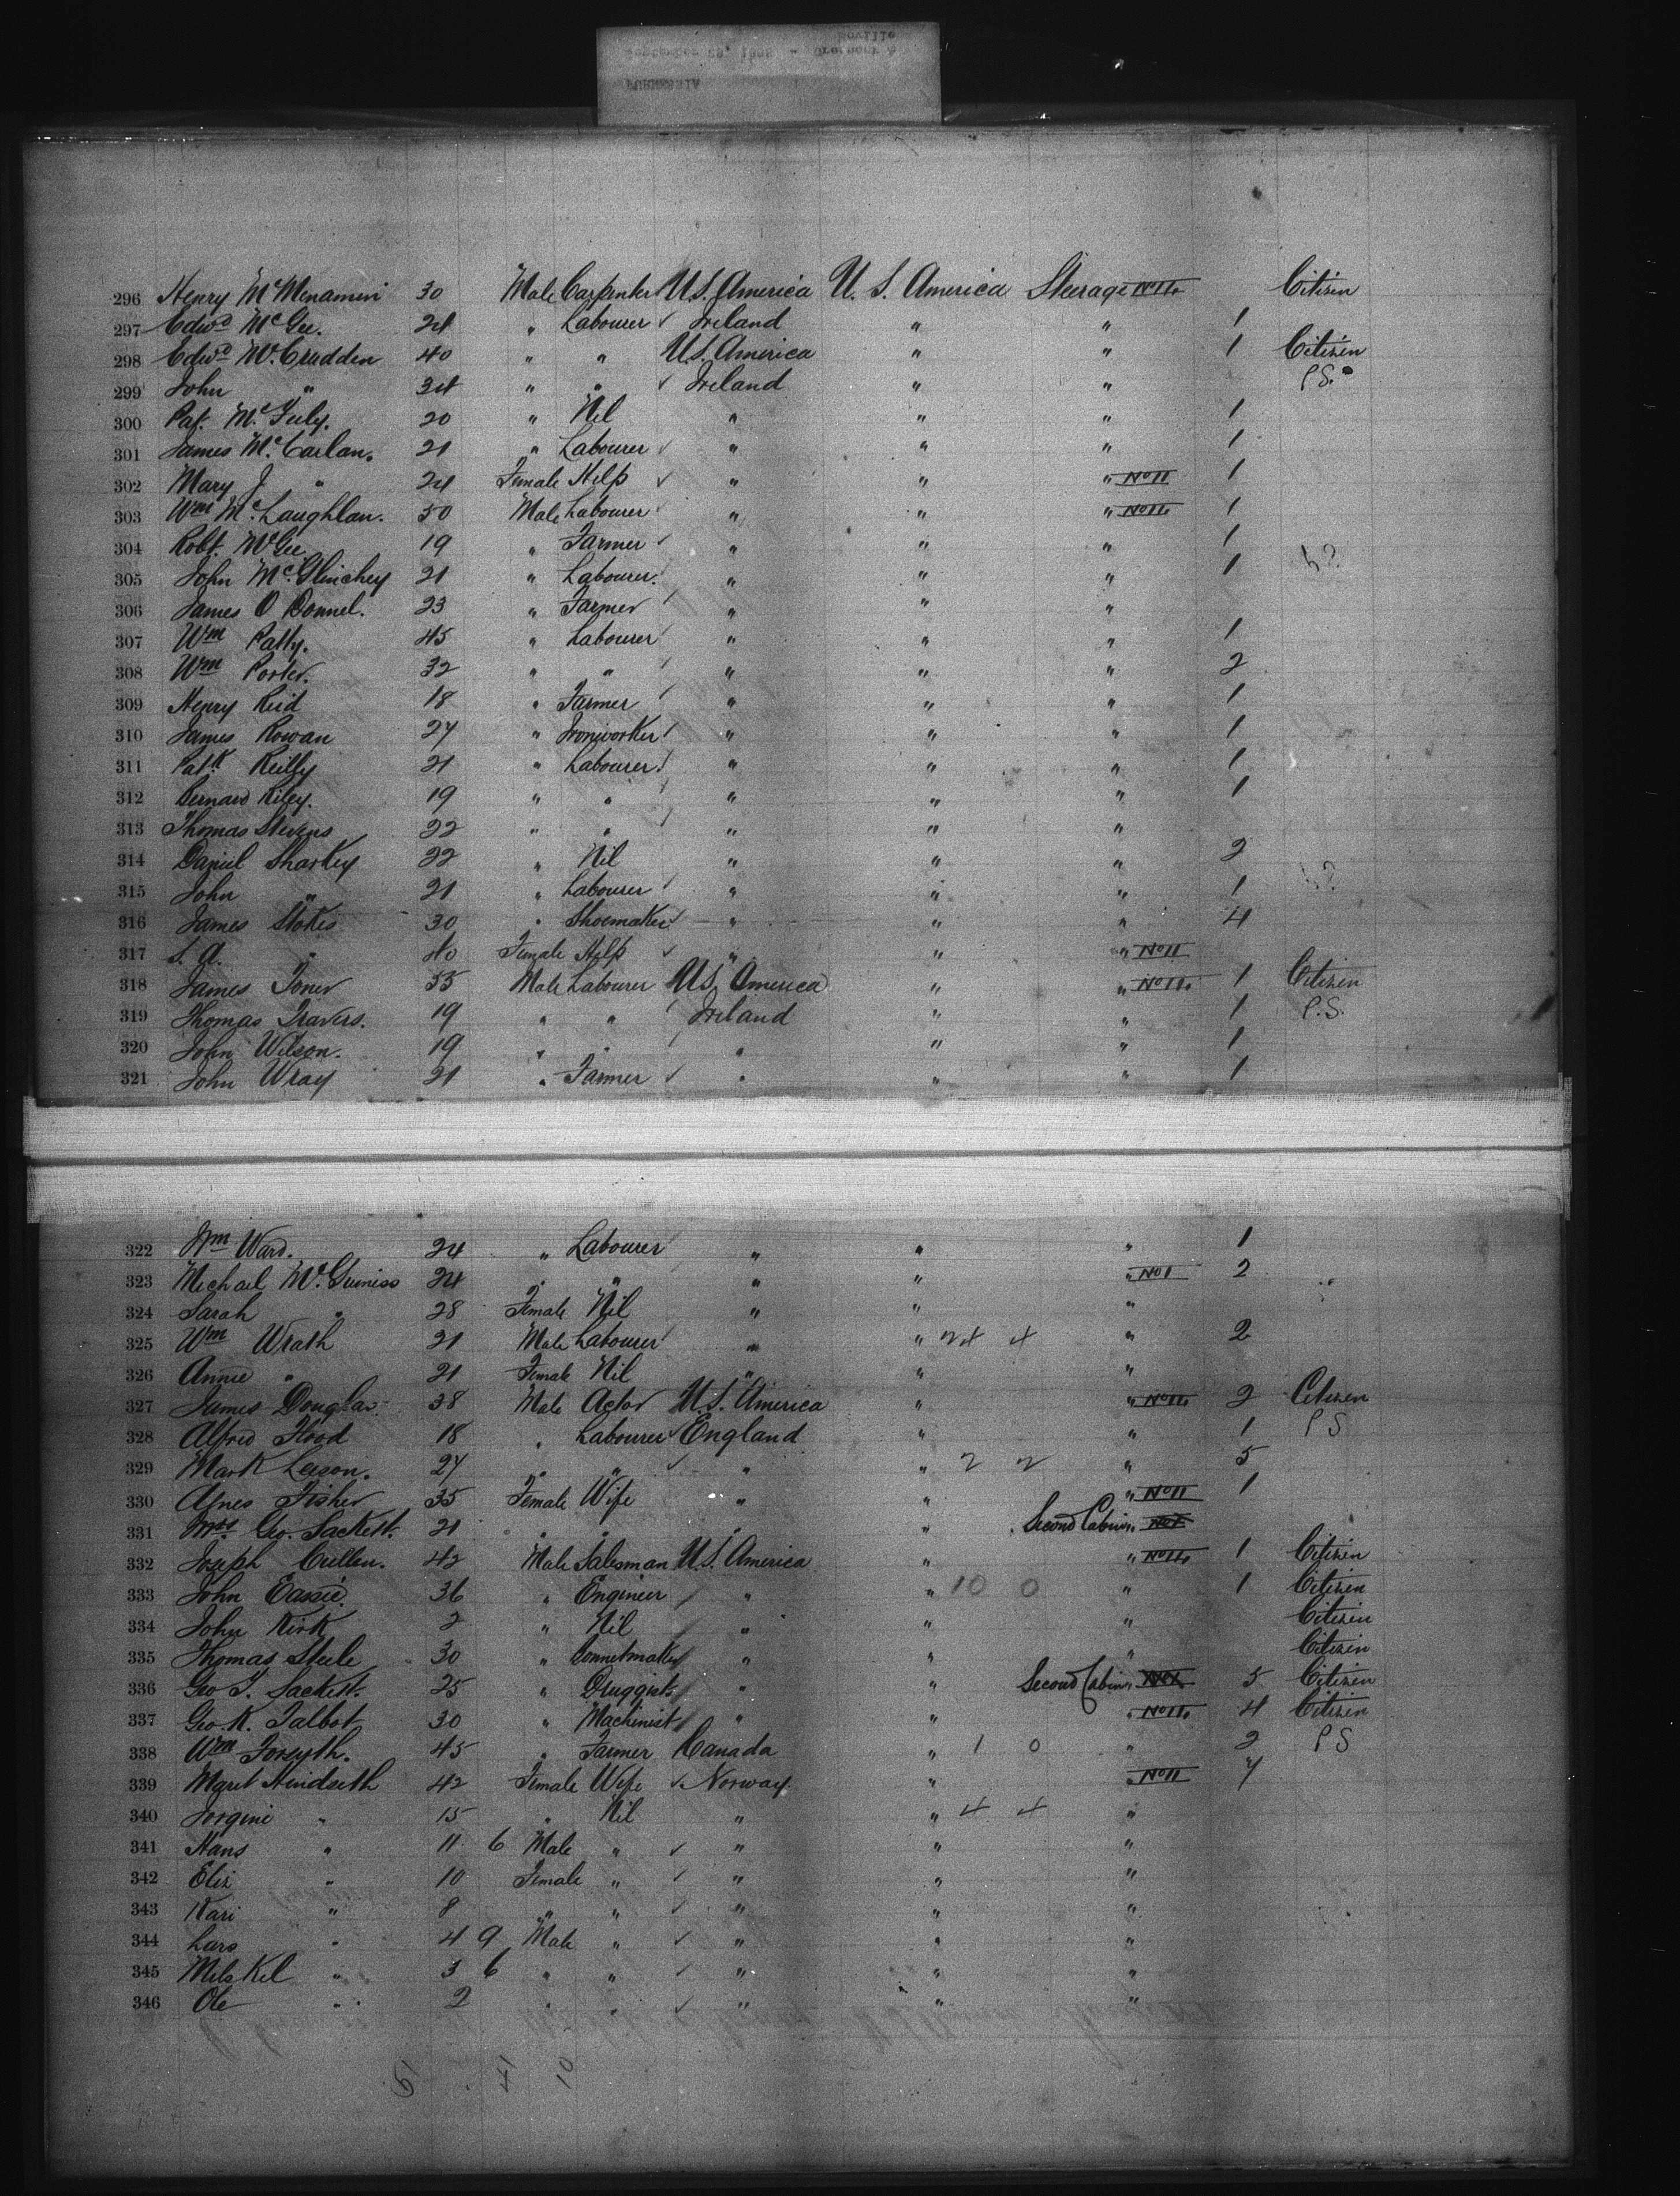 FURNESSIA
296 Henry McMenamin 30 Male Carpenter U.S. America U. S. America Steerage No 14 Citizen
297 Edwd McGee. 24 " Labourer ✓ Ireland " " 1
298 Edwd McCrudden 40 " " U.S. America " " 1 Citizen
299 John " 34 " " ✓ Ireland " " P.S.
300 Pat. McFuly. 20 " Nil " " " 1
301 James McCarlan. 21 " Labourer ✓ " " " 1
302 Mary J " 24 Female Help ✓ " " " No 11 1
303 Wm McLaughlan. 50 Male Labourer " " " No 14 1
304 Robt. McGee 19 " Farmer ✓ " " " 1
305 John McGlinchey 21 " Labourer " " " 1
306 James O Donnel. 23 " Farmer " " "
307 Wm Patty. 45 " Labourer " " " 1
308 Wm Porter. 32 " " " " " 2
309 Henry Reid 18 " Farmer " " " 1
310 James Rowan 27 " Ironworker " " " 1
311 Patk Reilly 21 " Labourer " " " 1
312 Bernard Riley. 19 " " " " " 1
313 Thomas Stevens 22 " " " " "
314 Daniel Sharkey 22 " Nil " " " 2
315 John " 21 " Labourer " " " 1
316 James Stokes 30 " Shoemaker " " " 4
317 S. A. " 40 Female Help ✓ " " " No 11
318 James Toner 55 Male Labourer U.S. America " " No 14 1 Citizen
319 Thomas Travers. 19 " " Ireland " " 1 P.S.
320 John Wilson. 19 " " " " " 1
321 John Wray 21 " Farmer ✓ " " " 1
322 Wm Ward. 24 " Labourer " " " 1
323 Michael McGuiniss 24 " " " " " No 1 2
324 Sarah " 28 Female Nil " " "
325 Wm Wrath 21 Male Labourer " " 24 4 " 2
326 Annie " 21 Female Nil " " "
327 James Douglas. 38 Male Actor U.S. America " " No 14 2 Citizen
328 Alfred Hood 18 " Labourer ✓ England " " 1 P S
329 Mark Leeson. 27 " " ✓ " " 2 2 " 5
330 Agnes Fisher 35 Female Wife " " " No 11 1
331 Mrs Geo. Sackett. 21 " " " " Second Cabin No 1
332 Joseph Cullen. 42 Male Salesman U.S. America " " No 14 1 Citizen
333 John Eassie. 36 " Engineer " " 10 0 " 1 Citizen
334 John Kirk 2 " Nil " " " Citizen
335 Thomas Steele 30 " Bonnetmaker " " " Citizen
336 Geo T. Sackett. 25 " Druggist " " Second Cabin No 1 5 Citizen
337 Geo. K. Talbot 30 " Machinist " " " No 14 4 Citizen
338 Wm Forsyth. 45 " Farmer Canada " 1 0 " 2 P S
339 Marit Hindseth 42 Female Wife ✓ Norway. " " No 11 7
340 Jorgine " 15 " Nil " " 4 4 "
341 Hans " 11 6 Male " ✓ " " "
342 Eliz " 10 Female " ✓ " " "
343 Kari " 8 " " ✓ " " "
344 Lars " 4 9 Male " ✓ " " "
345 " 3 6 " " ✓ " " "
346 Ole " 2 " " ✓ " " "